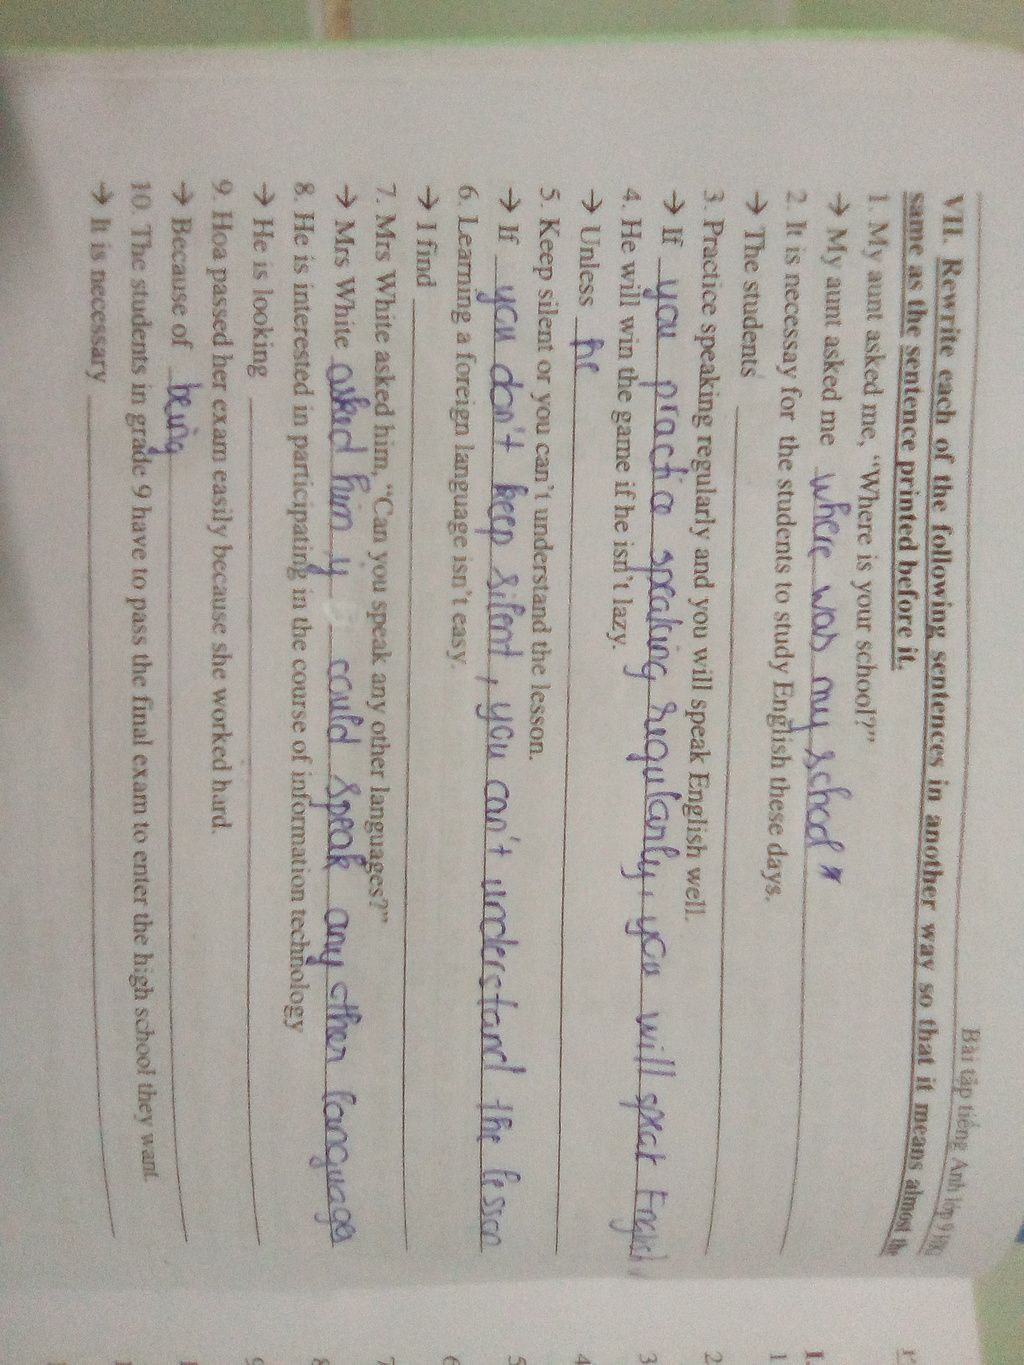 Bài tập tiếng Anh lớp 9
VII. Rewrite each of the following sentences in another way so that it means almost the
same as the sentence printed before it.
1. My aunt asked me, "Where is your school?"
→ My aunt asked me where was my school
2. It is necessay for the students to study English these days.
→ The students
3. Practice speaking regularly and you will speak English well.
→ If you practice speaking regularly, you will speak English
4. He will win the game if he isn't lazy.
→ Unless he
5. Keep silent or you can't understand the lesson.
→ If you don't keep silent, you can't understand the lesson
6. Learning a foreign language isn't easy.
→ I find
7. Mrs White asked him, "Can you speak any other languages?"
→ Mrs White asked him y could speak any other languages
8. He is interested in participating in the course of information technology
→ He is looking
9. Hoa passed her exam easily because she worked hard.
→ Because of being
10. The students in grade 9 have to pass the final exam to enter the high school they want.
→ It is necessary
1.
1
2
3
4
5
6
7
8
9
1